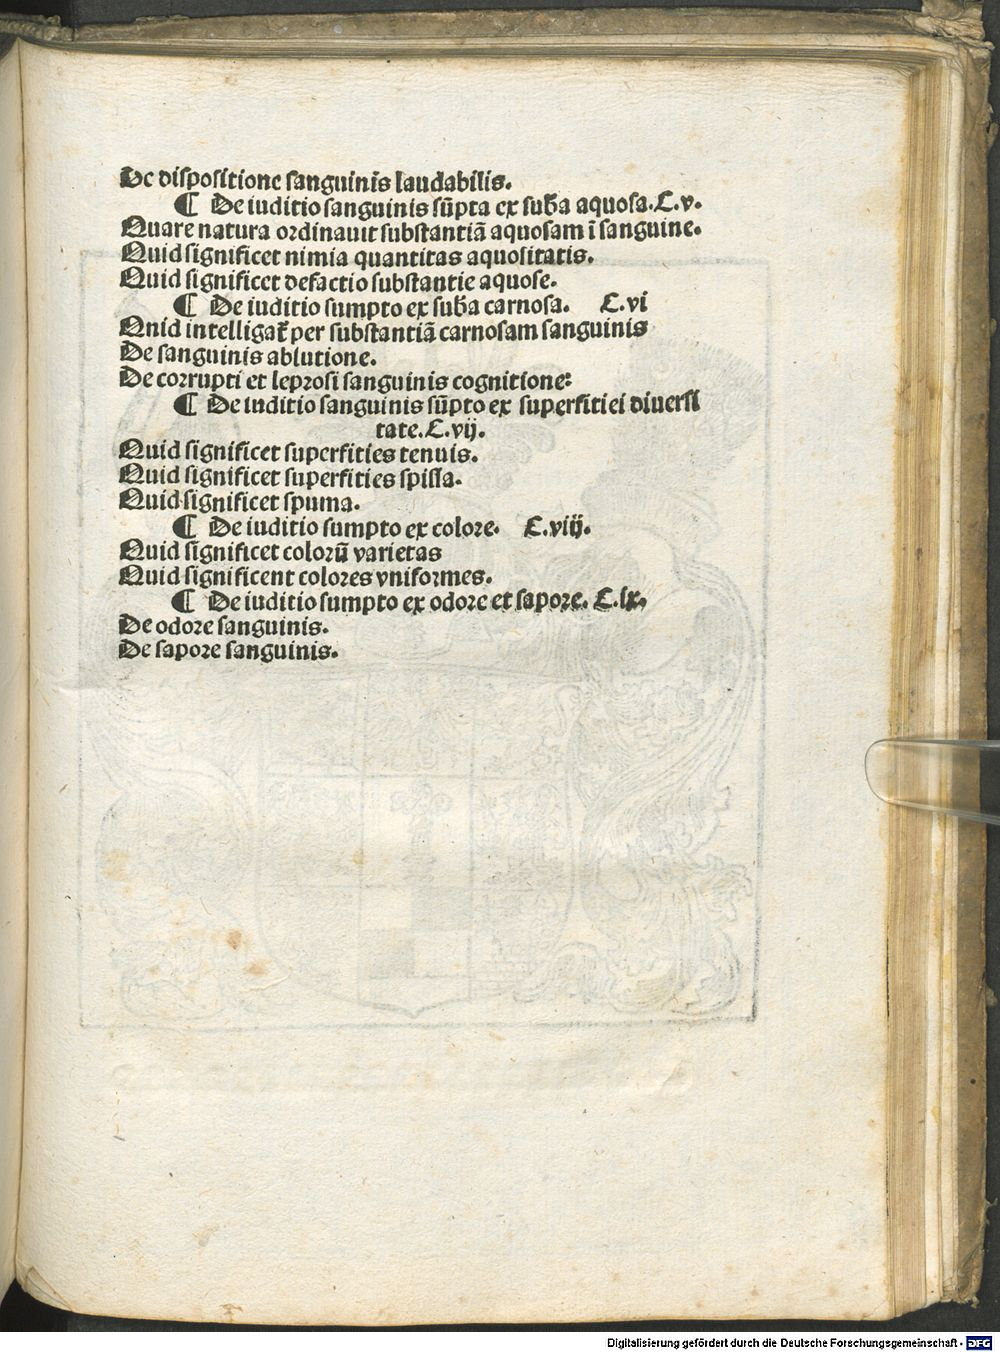 De dispositione sanguinis laudabilis.
¶ De iuditio sanguinis sūpta ex sub̄a aquosa. C.v.
Quare natura ordinauit substantiā aquosam ī sanguine.
Quid significet nimia quantitas aquositatis.
Quid significet defactio substantie aquose.
¶ De iuditio sumpto ex sub̄a carnosa. C.vi
Qnid intelligat᷑ per substantiā carnosam sanguinis
De sanguinis ablutione.
De corrupti et leprosi sanguinis cognitione:
¶ De inditio sanguinis sūpto ex superfitiei diuersi
tate. C.vij.
Quid significet superfities tenuis.
Quid significet superfities spissa.
Quid significet spuma.
¶ De iuditio sumpto ex colore. C.viij.
Quid significet colorū varietas
Quid significent colores vniformes.
¶ De iuditio sumpto ex odore et sapore. C.ix.
De odore sanguinis.
De sapore sanguinis.
Digitalisierung gefördert durch die Deutsche Forschungsgemeinschaft - DFG